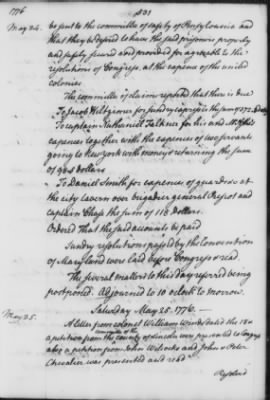 1776
331
May 24.
be sent to the committee of safety of Pensylvania and
that they be desired to have the said prisoners properly
and safely secured and provided for agreeable to the
resolutions of Congress, at the expence of the united
colonies
The committee of claims reported that there is due
To Jacob Hiltzimer for sundry expences the sum of 272
To captain Nathaniel Falkner for his and Mr
expences together with the expences of two servants
going to new york with money & returning the sum
of dollars
To Daniel Smith for expences of guards &c at
the city tavern over brigadier general Prescot and
captain Chase the sum of 118 dollars.
Ordered That the said accounts be paid
Sundry resolutions passed by the Convention
of Maryland were laid before Congress & read
The several matters to this day referred being
postponed. Adjourned to 10 oClock to morrow.
Saturday May 25. 1776.
May 25.
A letter from colonel William Winds dated the 18
a petition from the committee of the county of were presented to Congress
also a petition from John Wilcocks and John & Peter
Chevalier was presented and read
Resolved